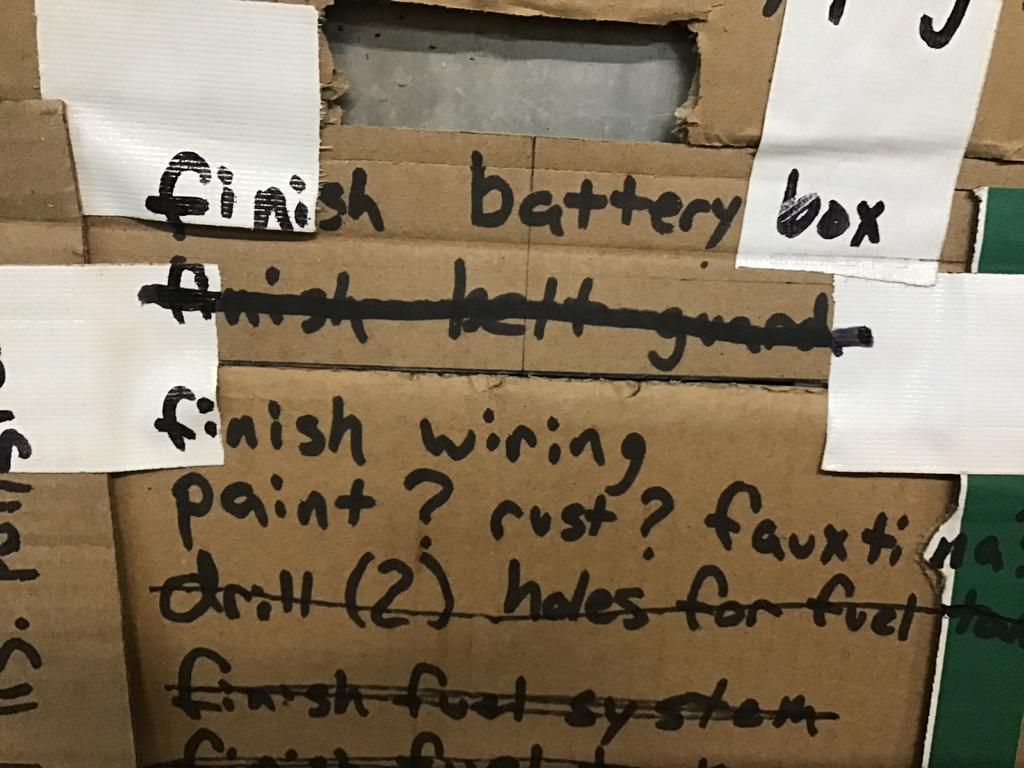 finish battery box
finish belt guard
finish wiring
paint? rust? fauxtina?
drill (2) holes for fuel
finish fuel system
finish fuel